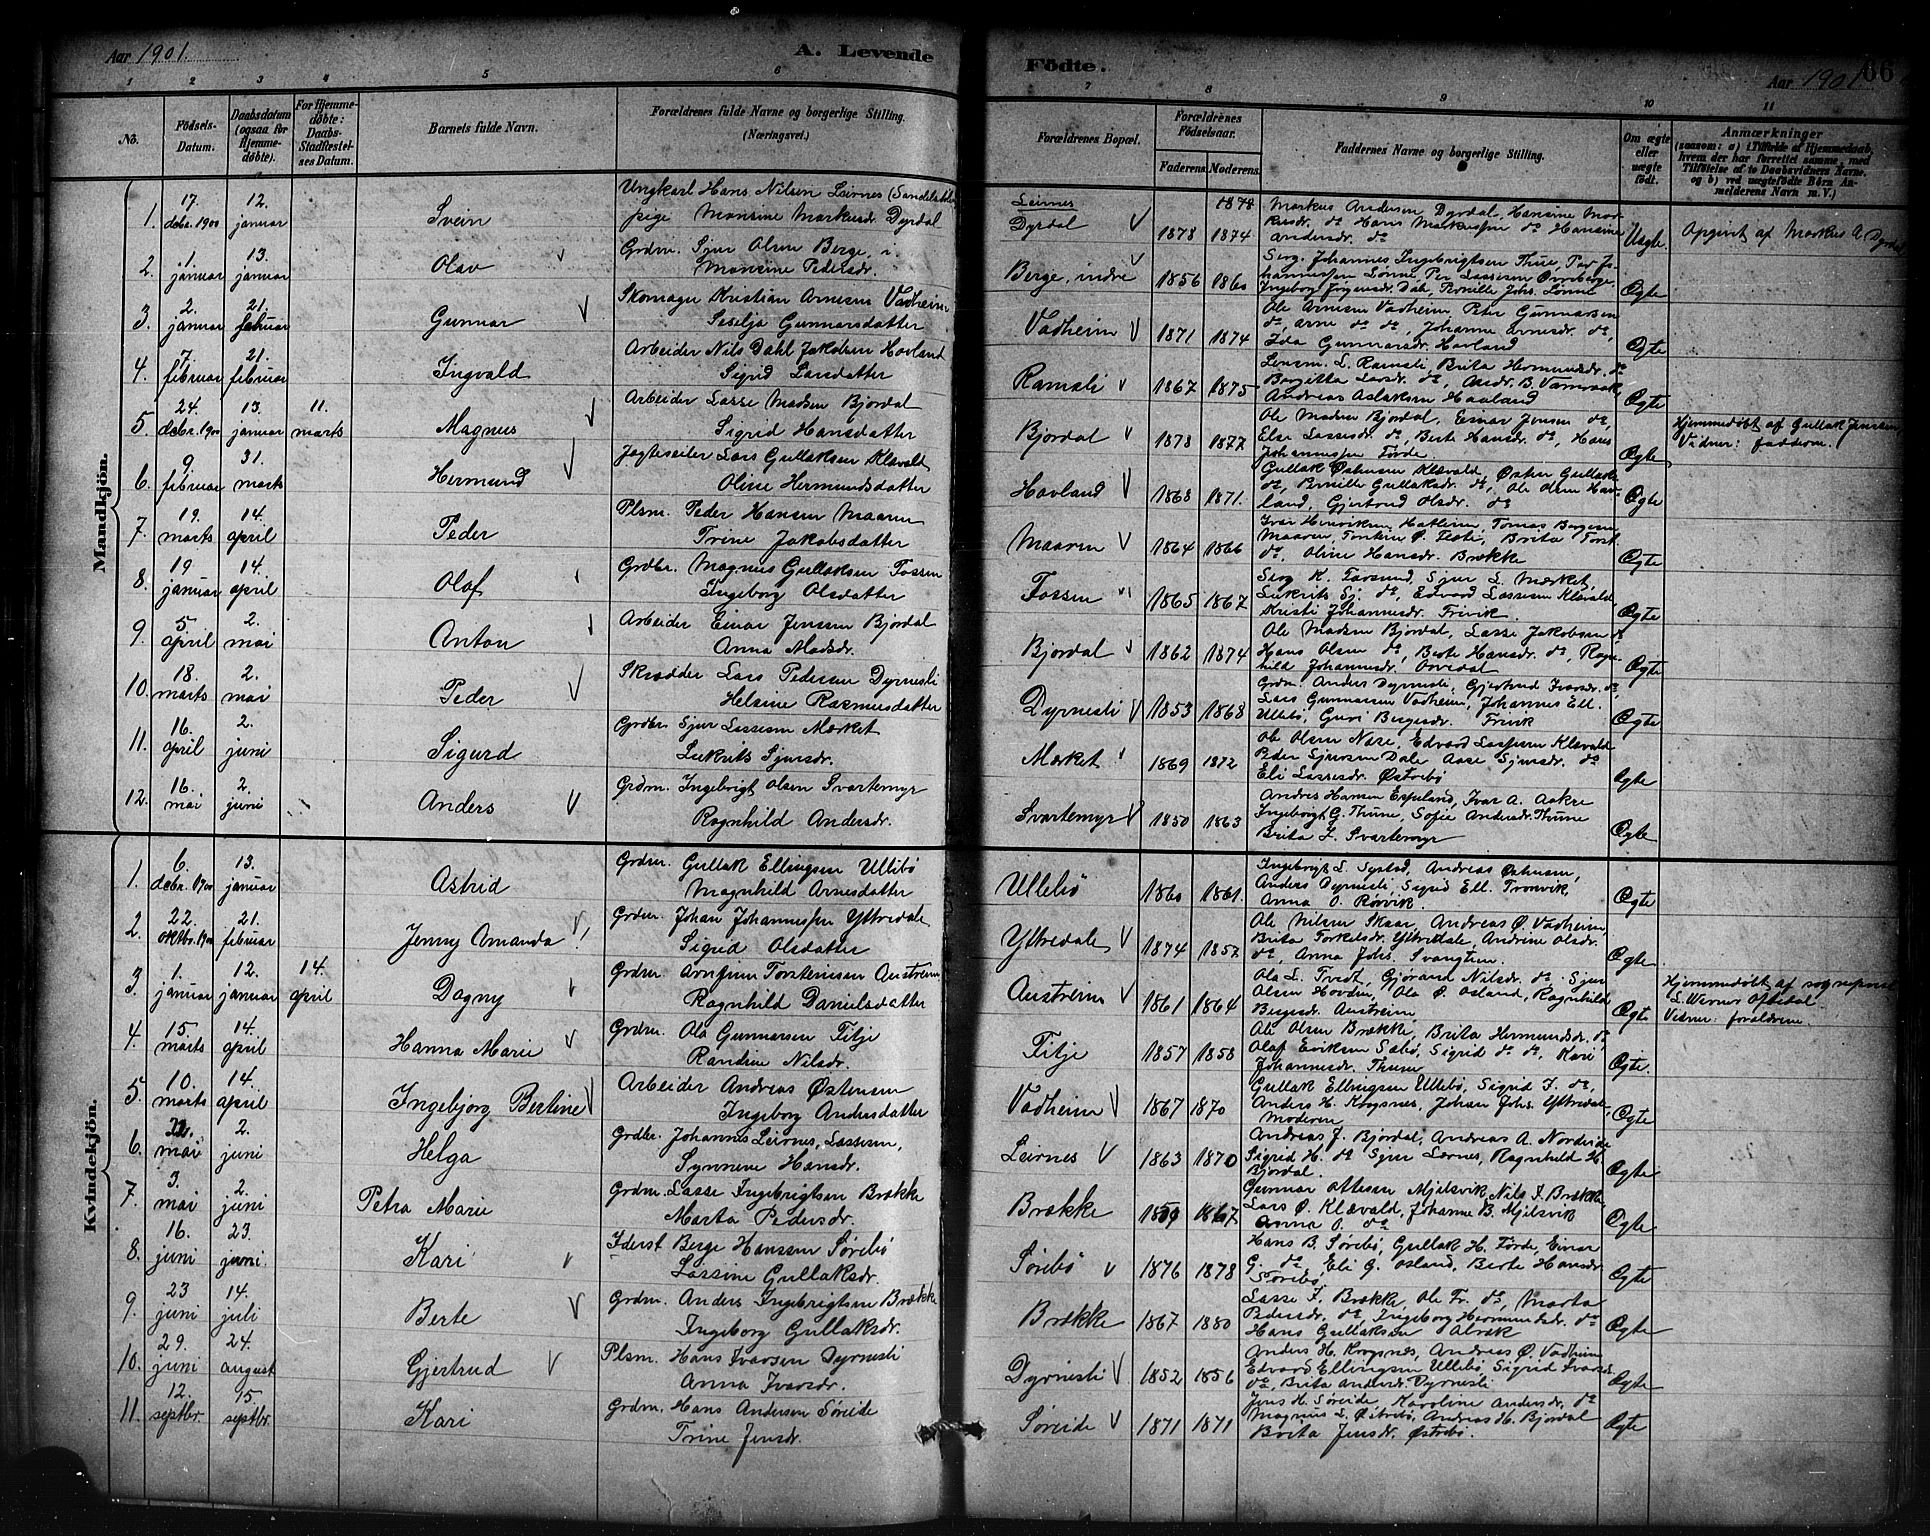 Aar 1901.
A. Levende
Fødte.
Aar 1901
66
1 2 3 4 5 6 7 8 9 10 11
No.
Fødsels-Datum.
Daabsdatum (ogsaa for Hjemmedøbte).
For Hjemmedøbte: Daabs-Stadfæstelses Datum.
Barnets fulde Navn.
Forældrenes fulde Navne og borgerlige Stilling. (Næringsvei.)
Forældrenes Bopæl.
Forældrenes Fødselsaar.
Faderens Moderens.
Faddernes Navne og borgerlige Stilling.
Om ægte eller uægte født.
Anmærkninger (saasom: a) i Tilfælde af Hjemmedaab, hvem der har forrettet samme, med Tilføielse af to Daabsvidners Navne, og b) ved uægtefødte Børn Anmelderens Navn m. V.)
Mandkjøn.
1. 17. debr. 1900 12. januar Svein Ungkarl Hans Nilsen Leirnes
pige Mansine Markusdr. Dyrdal Leirnes Dyrdal 1878 1878 1874 Markus Andersen Dyrdal, Hansine Markusdr. do Hans Markussen do Hansine Andersdr. do Uægte. Opgivet af Markus A. Dyrdal
2. 1. januar 13. januar Olav Grdm. Sjur Olsen Berge, i.
Mansine Pedersdr. Berge, indre 1856 1860 Serg. Johannes Ingebrigtsen Thue, Per Johannessen Lønne Per Lassesen Øvrebøe, Ingeborg Jørgensdr. Dale, Pernille Johs. Lønne Ægte
3. 2. januar 21. februar Gunnar Skomager Kristian Arnesen Vadheim
Sesilja Gunnarsdatter Vadheim 1871 1874 Ole Arnesen Vadheim Peter Gunnarsen do, Arne do do, Johanne Arnesdr. do, Ida Gunnarsdr. Hovland Ægte
4. 7. februar 21. februar Ingvald Arbeider Nils Dahl Jakobsen Hovland
Sigrid Larsdatter Ramsli 1867 1875 Lensm. L. Ramsli, Brita Hermundsdr. do Borgitta Larsdr. do, Andreas Aslaksen Haaland Ægte
5. 24. debr. 1900 13. januar 11. marts Magnus Arbeider Lasse Madsen Bjordal
Sigrid Hansdatter Bjordal 1873 1877 Ole Madsen Bjordal, Einar Jensen do, Else Lassesdr. do, Berte Hansdr. do, Hans Johannessen Førde. Ægte Hjemmedøbt af Gullak Jensen Vidner: fadderne.
6. 9. februar 31. marts Hermund Jægteseiler Lars Gullaksen Klævold
Oline Hermundsdatter Hovland 1868 1871. Gullak Østensen Klævold, Østen Gullaks. do, Pernille Gullaksdr. do, Ole Olsen Hovland, Gjertrud Olsdr. do Ægte
7. 19. marts 14. april Peder Plsm. Peder Hansen Maaren
Trine Jakobsdatter Maaren 1864 1866 Ivar Henriksen Hatleim, Tomas Børgesen Maaren, Torkien O. Teote, Brita Torst. do, Oline Hansdr. Brække Ægte
8. 19. januar 14. april Olaf Grdbr. Magnus Gullaksen Fossen
Ingeborg Olsdatter Fossen 1865 1867 Serg. K. Farsund, Sjur L. Mærket, Lukrits Sj. do, Edvard Lassesen Klævold Kristi Johannesdr. Frivik. Ægte
9. 5. april 2. mai Anton Arbeider Einar Jensen Bjordal
Anna Madsdr. Bjordal 1862 1874 Ole Madsen Bjordal, Lasse Jakobsen do Hans Olsen do, Berte Hansdr. do, Ragnhild Johannesdr. Ovvedal Ægte
10. 18. marts 2. mai Peder Skrædder Lars Pedersen Dyrnesli
Helsine Rasmusdatter Dyrnesli 1853 1868 Grdm. Anders Dyrnesli, Gjertrud Ivarsdr. do, Lars Gunnarsen Vadheim, Johannes Ell. Ullebø, Guri Bergesdr. Frivik Ægte
11. 16. april 2. juni Sigurd Grdbr. Sjur Lassesen Mærket
Lukrits Sjursdr. Mærket 1869 1872 Ole Olsen Nase, Edvard Lassesen Klævold Peder Sjursen Dale Aase Sjursdr. do Eli Lassesdr. Østrebø Ægte
12. 16. mai 2. juni Anders Grdm. Ingebrigt Olsen Svartemyr
Ragnhild Andersdr. Svartemyr 1850 1863 Andres Hansen Espeland, Ivar A. Aakre Ingeborgt G. Thune, Sofie Andersdr. Thune Brita I. Svartemyr Ægte
Kvindekjøn.
1. 6. debr. 1900 13. januar Astrid Grdm. Gullak Ellingsen Ullebø
Magnhild Arnesdatter Ullebø 1860 1861. Ingebrigt L. Systad, Andreas Østensen, Anders Dyrnesli, Sigrid Ell. Tronvik, Anna O. Rørvik. Ægte
2. 22. oktbr. 1900 21. februar Jenny Amanda Grdm. Johan Johannessen Yttredale
Sigrid Olsdatter Yttredale 1874 1857 Ole Nilsen Skaar, Andreas Ø. Vadheim Brita Torkelsdr. Yttredale, Andrine Olsdr. do, Anna Johs. Svangtun. Ægte
3. 1. januar 12. januar 14. april Dagny Grdm. Arnfinn Torsteinsen Austreim
Ragnhild Danielsdatter Austreim 1861 1864 Ola L. Tredt, Gjørand Nilsdr. do Sjur Olsen Hovden, Ola O. Osland, Ragnhild Bergesdr. Austreim Ægte Hjemmedøbt af sogneprest L. Werner Oftedal Vidner: forældrene.
4. 15. marts 14. april Hanna Marie Grdm. Ola Gunnarsen Titje
Randine Nilsdr. Titje 1857 1858 Ole Olsen Brække, Brita Hermundsdr. do Olaf Eriksen Sæbø, Sigrid do do, Kari Johannesdr. Thune Ægte.
5. 10. marts 14. april Ingebjorg Bertine Arbeider Andreas Østensen
Ingeborg Andersdatter Vadheim 1867 1870 Gullak Ellingsen Ullebø, Sigrid I. do, Anders H. Krogsnes, Johan Johs. Yttredale, Moderen Ægte
6. mai 2. juni Helga Grdbr. Johannes Leirnes, Lassesen,
Synneve Hansdr. Leirnes 1863 1870 Andreas J. Bjordal, Andreas A. Nordeide Sigrid H. do Sjur Lærnes, Ragnhild H. Bjordal. Ægte
7. 3. mai 2. juni Petra Marie Grdm. Lasse Ingebrigtsen Brække
Marta Pedersdr. Brække 1859 1867 Gunnar Ottesen Mjelsvik, Nils I. Brække Lars Ø. Klævold, Johanne B. Mjelsvik Anna O. do Ægte
8. 16. juni 23. juni Kari Iderst Berge Hanssen Sørebø
Lassine Gullaksdr. Sørebø 1876 1878 Hans B. Sørebø, Gullak H. Førde, Einar G. do, Eli G. Osland, Berte Hansdr. Sørebø Ægte
9. 23 juni 14. juli Berte Grdm. Anders Ingebrigtsen Brække
Ingeborg Gullaksdr. Brække 1867 1880 Lasse I. Brække, Ole Fr. do, Marta Pedersdr. do, Ingeborg Hermundsdr. do Hans Gullaksen Alræk Ægte
10. 29. juni 24. august Gjertrud Plsm. Hans Ivarsen Dyrnesli
Anna Ivarsdr. Dyrnesli 1852 1856 Anders H. Krogsnes, Andreas Ø. Vadheim Edvard Ellingsen Ullebø Sigrid Ivarsdr. do, Brita Andersdr. Dyrnesli Ægte
11. 12. septbr. 15. septbr. Kari Grdm. Hans Andersen Søreide
Trine Jensdr. Søreide 1871 1871 Jens H. Søreide, Karoline Andersdr. do Magnus L. Østrebø, Andreas H. Bjordal Brita Jensdr. Østrebø. Ægte